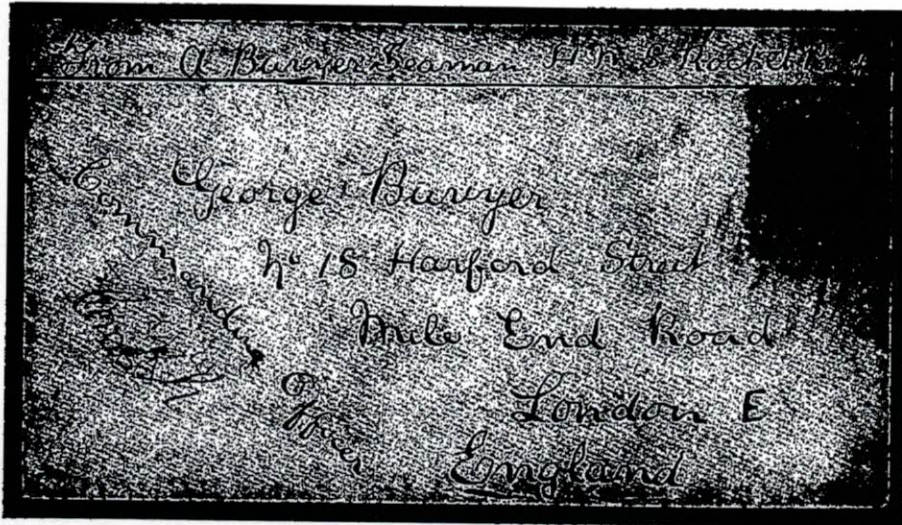 From A Bawyer Seaman H M S Rocket
George Bawyer
No 18 Harford Street
Mile End Road
London E
England
Commanding Officer